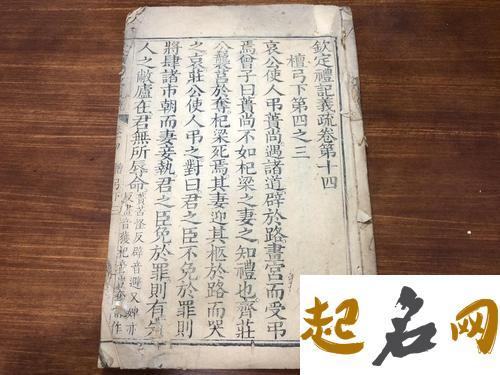 欽定禮記義疏卷第十四
檀弓下第四之三
哀公使人弔蕢尚遇諸道辟於路畫宮而受弔
焉曾子曰蕢尚不如杞梁之妻之知禮也齊莊
公襲莒於奪杞梁死焉其妻迎其柩於路而哭
之哀莊公使人弔之對曰君之臣不免於罪則
將肆諸市朝而妻妾執君之臣免於罪則有先
人之敝廬在君無所辱命蕢苦怪反辟音避又婢亦
反畫音獲杞音
起名网